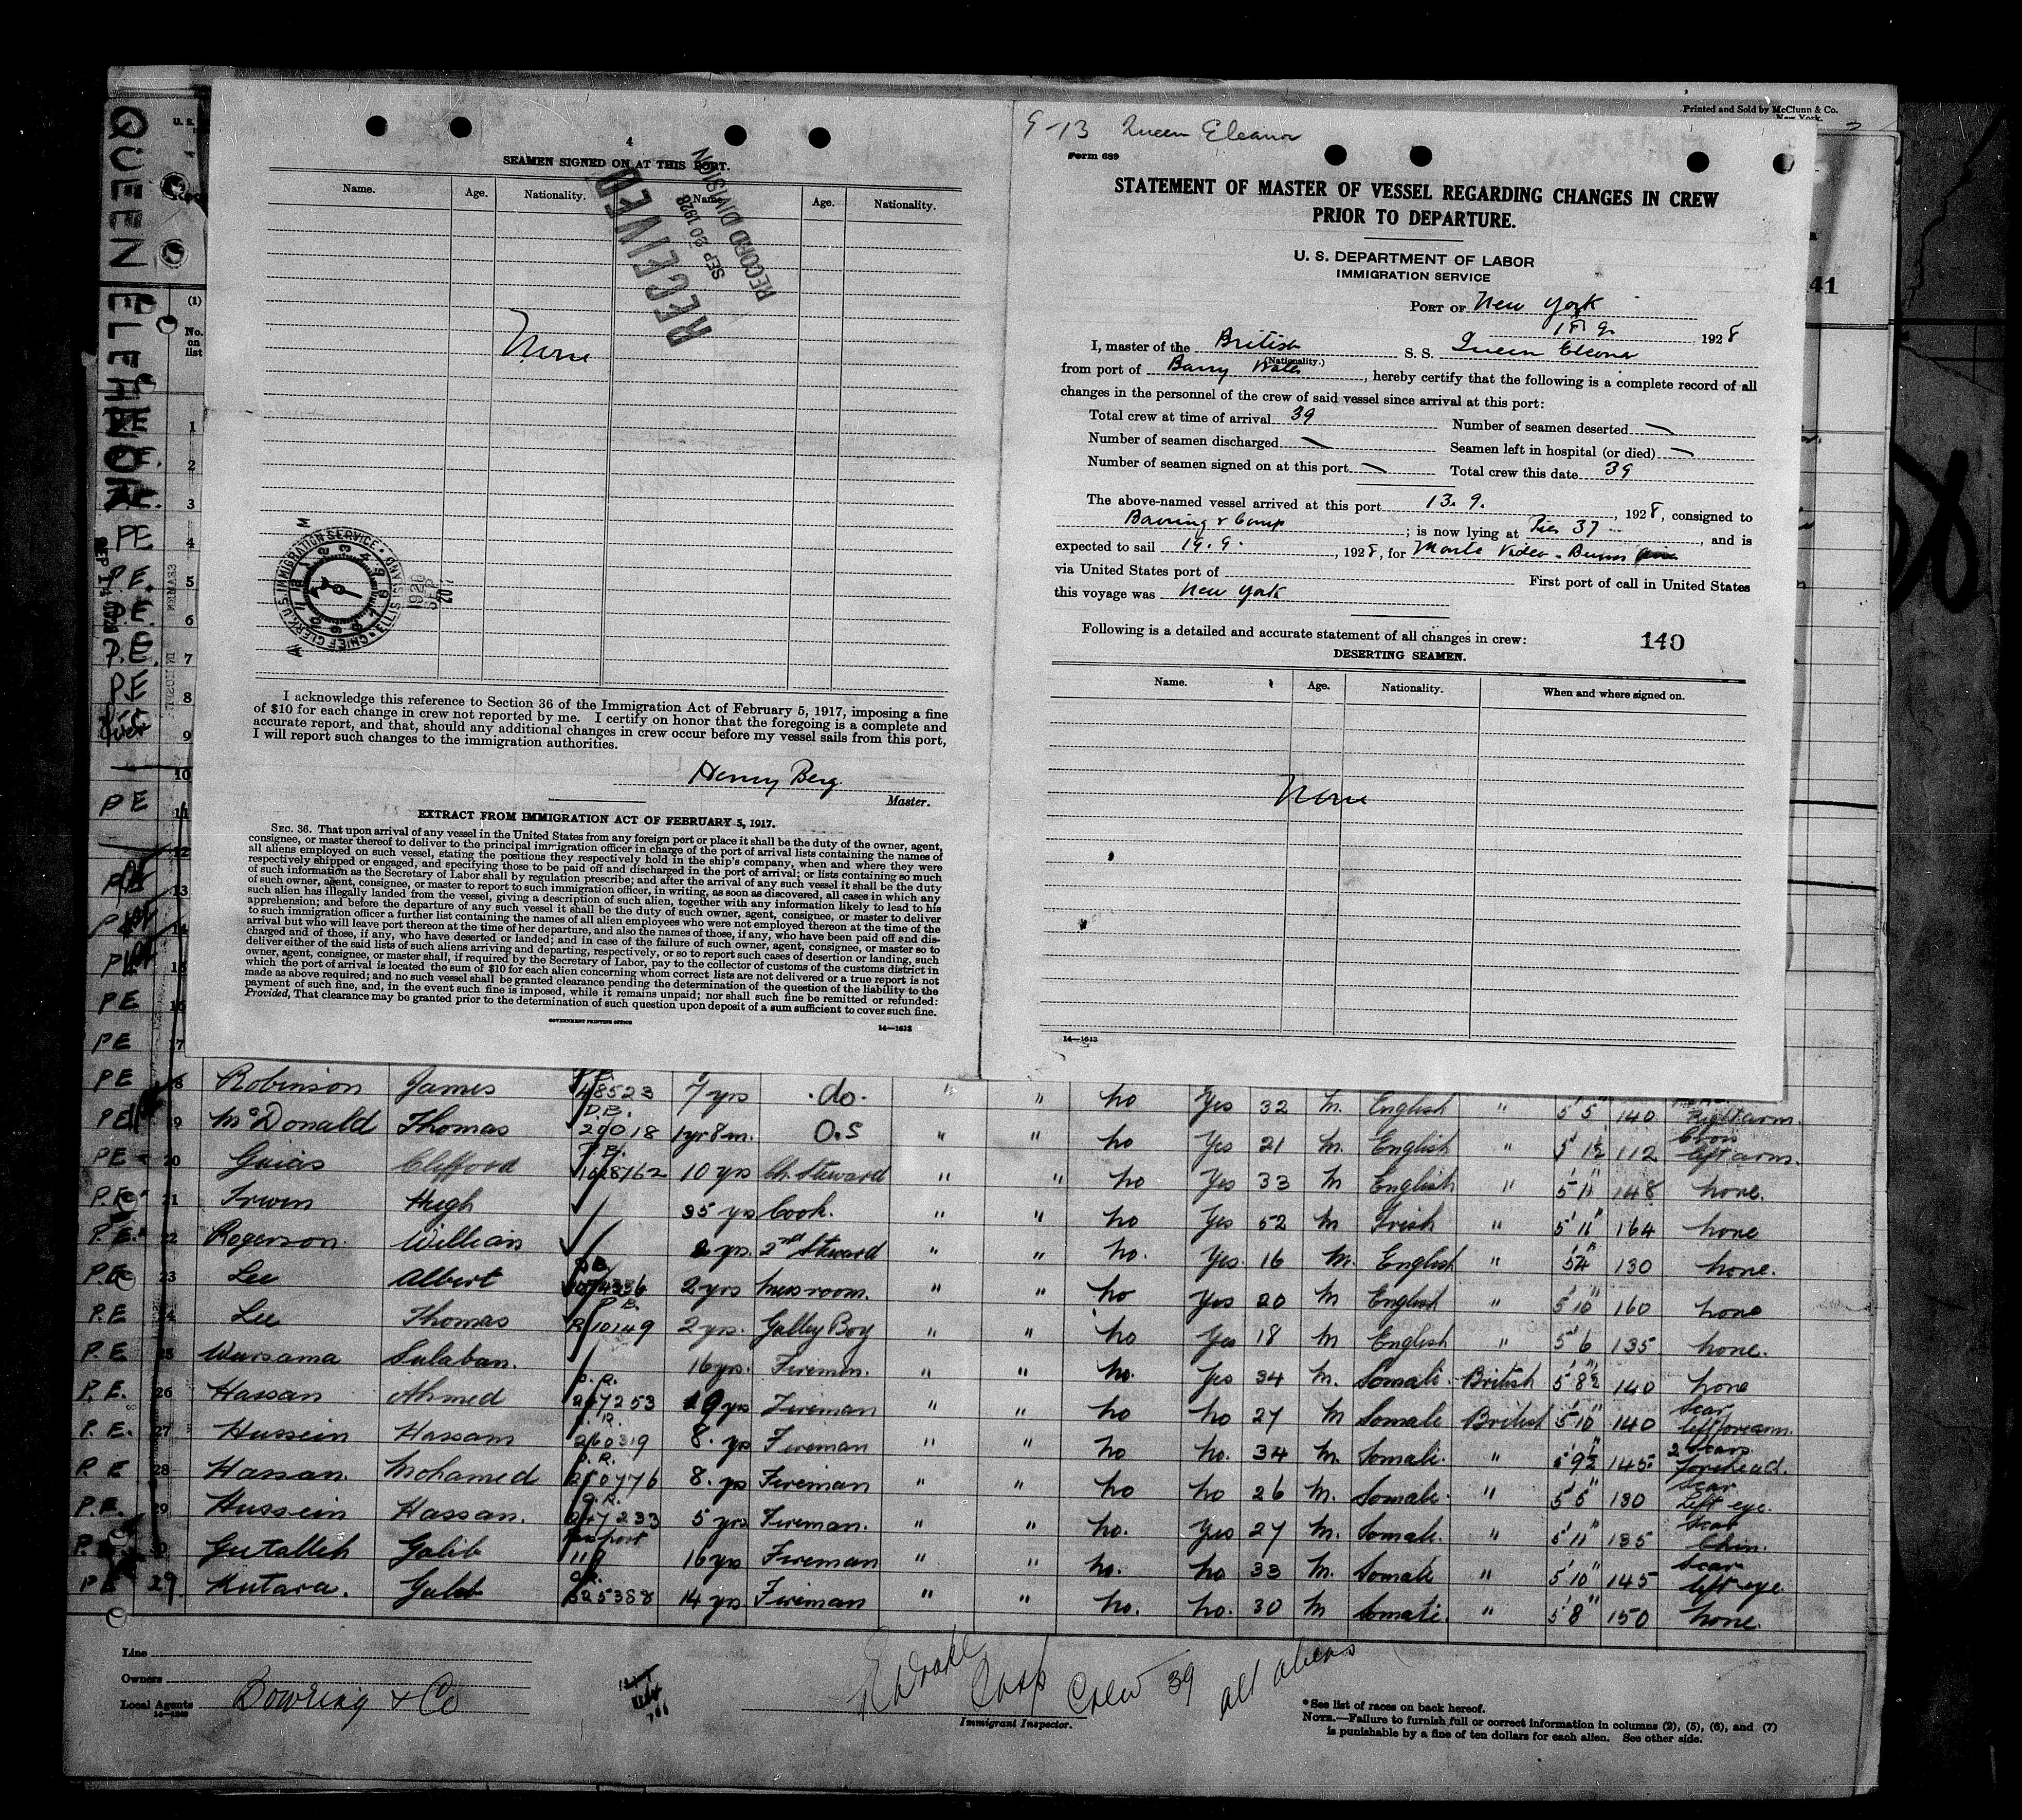 Printed and Sold by McClunn & Co.
New York.
QUEEN ELEANOR
4
SEAMEN SIGNED ON AT THIS PORT.
Name. Age. Nationality. Name. Age. Nationality.
RECEIVED
SEP 20 1928
RECORD DIVISION
None
I acknowledge this reference to Section 36 of the Immigration Act of February 5, 1917, imposing a fine
of $10 for each change in crew not reported by me. I certify on honor that the foregoing is a complete and
accurate report, and that, should any additional changes in crew occur before my vessel sails from this port,
I will report such changes to the immigration authorities.
Henry Berg
Master.
EXTRACT FROM IMMIGRATION ACT OF FEBRUARY 5, 1917.
SEC. 36. That upon arrival of any vessel in the United States from any foreign port or place it shall be the duty of the owner, agent,
consignee, or master thereof to deliver to the principal immigration officer in charge of the port of arrival lists containing the names of
all aliens employed on such vessel, stating the positions they respectively hold in the ship's company, when and where they were
respectively shipped or engaged, and specifying those to be paid off and discharged in the port of arrival; or lists containing so much
of such information as the Secretary of Labor shall by regulation prescribe; and after the arrival of any such vessel it shall be the duty
of such owner, agent, consignee, or master to report to such immigration officer, in writing, as soon as discovered, all cases in which any
such alien has illegally landed from the vessel, giving a description of such alien, together with any information likely to lead to his
apprehension; and before the departure of any such vessel it shall be the duty of such owner, agent, consignee, or master to deliver
to such immigration officer a further list containing the names of all alien employees who were not employed thereon at the time of the
arrival but who will leave port thereon at the time of her departure, and also the names of those, if any, who have been paid off and dis-
charged and of those, if any, who have deserted or landed; and in case of the failure of such owner, agent, consignee, or master so to
deliver either of the said lists of such aliens arriving and departing, respectively, or so to report such cases of desertion or landing, such
owner, agent, consignee, or master shall, if required by the Secretary of Labor, pay to the collector of customs of the customs district in
which the port of arrival is located the sum of $10 for each alien concerning whom correct lists are not delivered or a true report is not
made as above required; and no such vessel shall be granted clearance pending the determination of the question of the liability to the
payment of such fine, and, in the event such fine is imposed, while it remains unpaid; nor shall such fine be remitted or refunded:
Provided, That clearance may be granted prior to the determination of such question upon deposit of a sum sufficient to cover such fine.
GOVERNMENT PRINTING OFFICE
14—1613
9-13 Queen Eleanor
Form 689
STATEMENT OF MASTER OF VESSEL REGARDING CHANGES IN CREW
PRIOR TO DEPARTURE.
U. S. DEPARTMENT OF LABOR
IMMIGRATION SERVICE
PORT OF New York
1928
I, master of the British S. S. Queen Eleanor
(Nationality.)
from port of Barry Wales, hereby certify that the following is a complete record of all
changes in the personnel of the crew of said vessel since arrival at this port:
Total crew at time of arrival 39 Number of seamen deserted —
Number of seamen discharged — Seamen left in hospital (or died) —
Number of seamen signed on at this port — Total crew this date 39
The above-named vessel arrived at this port 13. 9., 1928, consigned to
; is now lying at Pier 37, and is
expected to sail 19. 9., 1928, for Monte Video - Buenos
via United States port of First port of call in United States
this voyage was New York
Following is a detailed and accurate statement of all changes in crew: 140
DESERTING SEAMEN.
Name. Age. Nationality. When and where signed on.
None
14—1613
PE 18 Robinson James 48523 7 yrs do. " " no Yes 32 M. English " 5'5" 140 Right arm.
PE 19 McDonald Thomas 29018 1yr 8m. O.S " " no Yes 21 M. English " 5' 1½ 112 left arm.
PE 20 Clifford 1028762 10 yrs Ch. Steward " " no Yes 33 M English " 5'11" 148 none.
P.E. 21 Irwin Hugh 35 yrs Cook. " " no Yes 52 M Irish " 5'11" 164 none
P.E. 22 Rogerson William 2 yrs. 2nd Steward " " no. Yes. 16 M. English " 5'4" 130 none.
P.E. 23 Lee Albert 2 yrs Messroom. " " no Yes 20 M English " 5'10" 160 none
PE 24 Lee Thomas R 10149 2 yrs. Galley Boy " " no Yes 18 M English " 5'6 135 none.
P.E 25 Warsama Sulaban. 16 yrs. Firemen. " " no. Yes 34 M. Somali. British 5'8½" 140 none
P.E. 26 Hassan Ahmed 247253 yrs Fireman " " no no 27 M Somali British 5'10" 140 scar left forearm.
P.E. 27 Hussein Hassam 260319 8. yrs Fireman " " no no. 34 M. Somali. " 5'9½" 145 2 scars forehead.
P.E 28 Hassan. Mohamed 210776 8. yrs Fireman " " no no 26 M. Somali. " 5'5" 130 scar left eye.
P.E. 29 Hussein Hassan. 247233 5 yrs Fireman. " " no. Yes 27 M. Somali. " 5'11" 135 scar Chin.
P. 30 Gutalleh Galib Passport 16 yrs Fireman " " no. no 33 M. Somali " 5'10" 145 scar left eye.
PE 29 Mutara. Galib 325388 14 yrs Fireman " " no. no. 30 M Somali. " 5'8" 150 none.
Line
Owners
Local Agents Bowring & Co
14—1240
Crew 39 all aliens
Immigrant Inspector.
*See list of races on back hereof.
NOTE.—Failure to furnish full or correct information in columns (2), (5), (6), and (7)
is punishable by a fine of ten dollars for each alien. See other side.